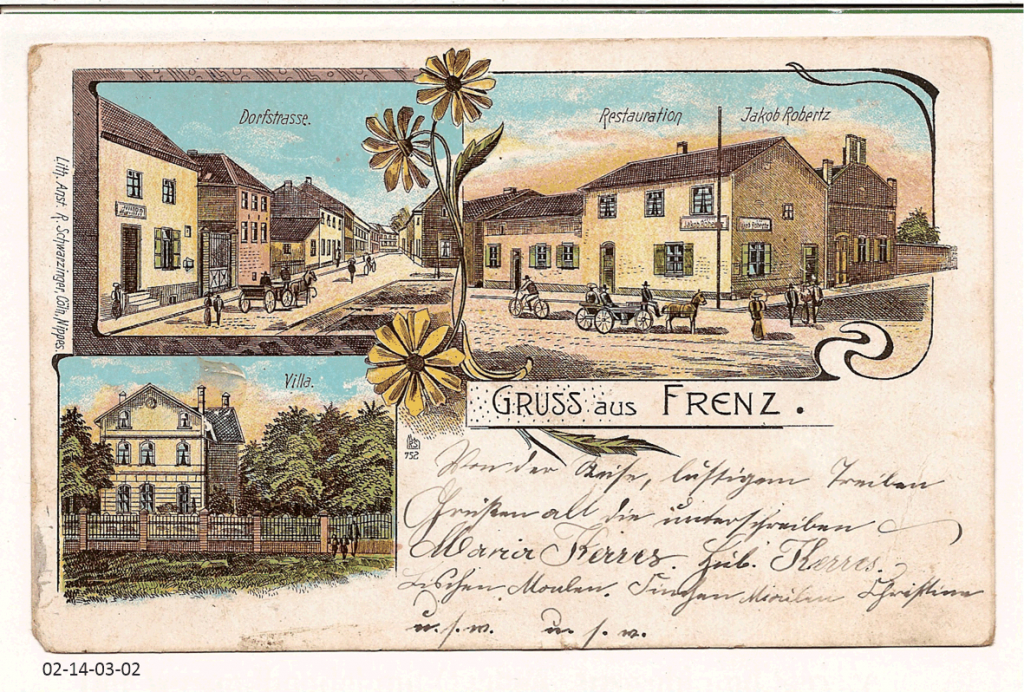 Dorfstrasse.
Restauration Jakob Robertz
Jakob Robertz
Jakob Robertz
Lith. Anst. R. Schwarzinger, Cöln, Nippes.
Villa.
GRUSS aus FRENZ.
752
Von der Reise, lustigem Treiben
Grüßen all die unterschreiben
Maria Kerres. Hub. Kerres.
Lischen Moulen. Finchen Moulen Christine
u. s. w. u. s. w.
02-14-03-02